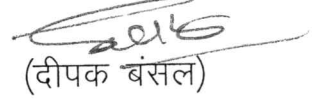 (दीपक बंसल)